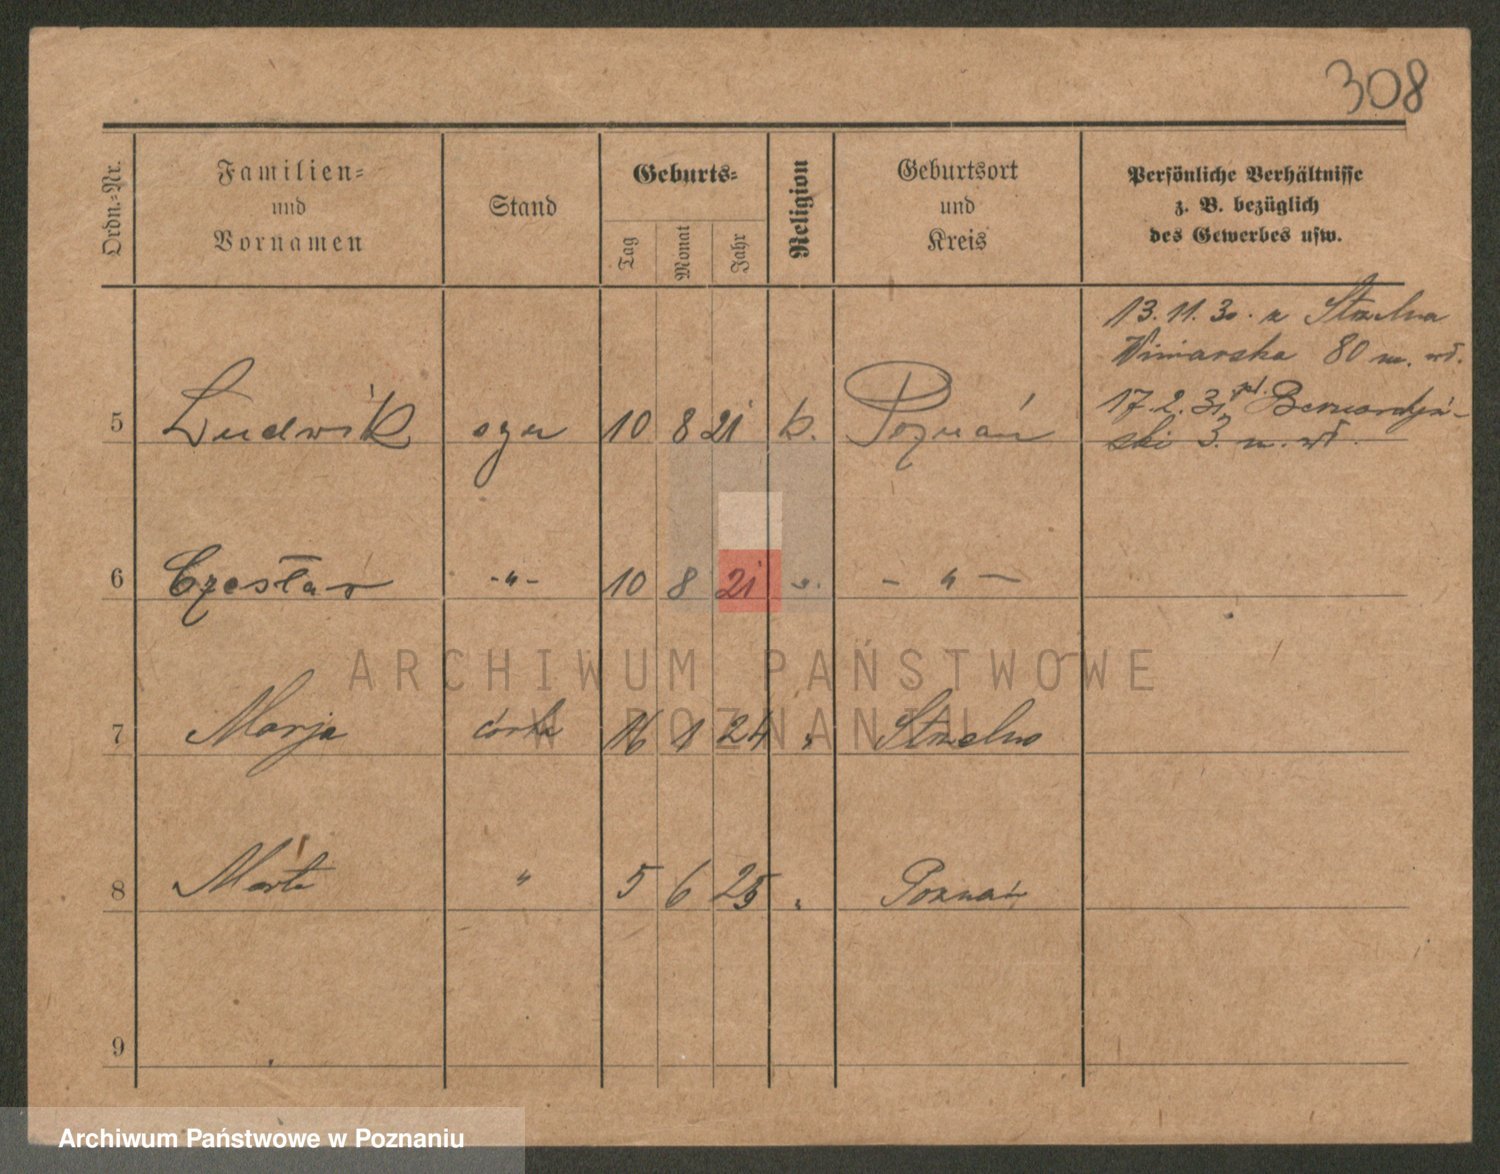 308
Ordn.-Nr.
Familien-
und
Vornamen
Stand
Geburts-
Tag
Monat
Jahr
Religion
Geburtsort
und
Kreis
Persönliche Verhältnisse
z. B. bezüglich
des Gewerbes usw.
13.11.30. z Strzelna
Winiarska 80 m. wł.
17.2.31 pl. Bernardyń-
ski 3. m. wł.
5 Ludwik syn 10 8 21 k. Poznań
6 Czesław -"- 10 8 21 ". - " -
7 Marja córka 16 1 24 " Strzelno
8 Marta " 5 6 25 " Poznań
9
ARCHIWUM PAŃSTWOWE
W POZNANIU
Archiwum Państwowe w Poznaniu